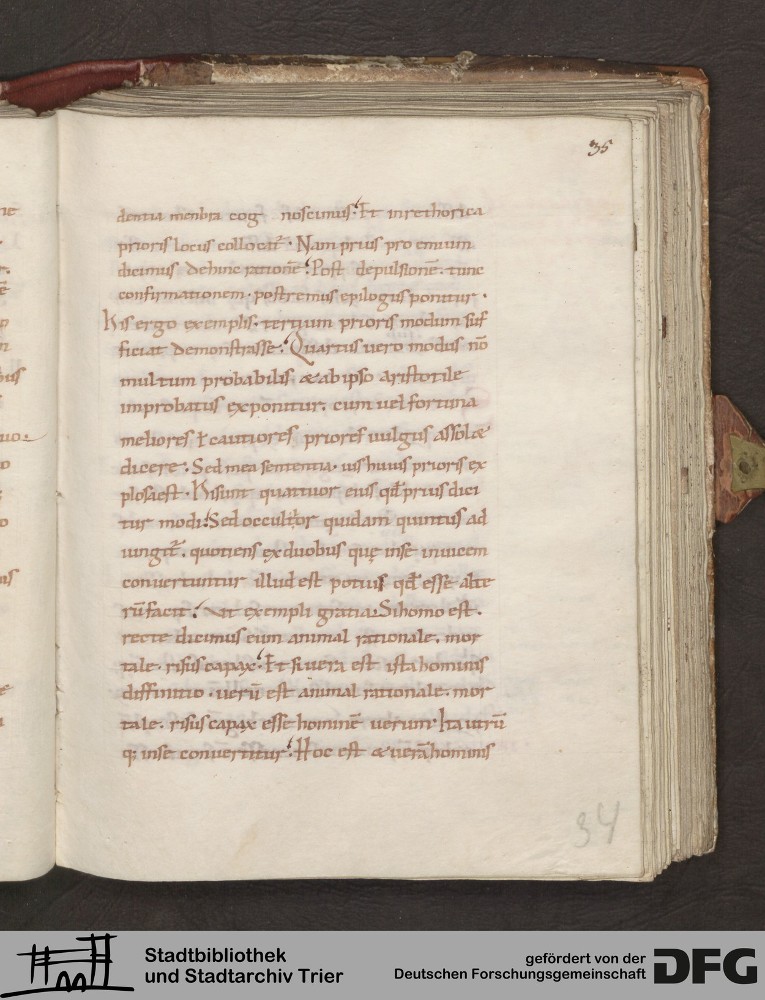 35
dentia menbra cog noscimus. Et inrethorica
prioris locus collocat̄. Nam prius pro emium
dicimus dehinc rationē. Post depulsionē. tunc
confirmationem. postremus epilogus ponitur.
His ergo exemplis. tertium prioris modum suf
ficiat demonstrasse. Quartus uero modus nō
multum probabilis & abipso aristotile
improbatus exponitur. cum uel fortuna
meliores ł cautiores priores uulgus assol&
dicere. Sed mea sententia. uis huius prioris ex
plosa est. Hi sunt quattuor eius qđ prius dici
tur modi. Sed occultior quidam quintus ad
iungit̄. quotiens ex duobus quę inse inuicem
conuertuntur illud est potius qđ esse alte
rū facit. Vt exempli gratia. Si homo est.
recte dicimus eum animal rationale. mor
tale. risus capax. Et si uera est ista hominis
diffinitio. uerū est animal rationale. mor
tale. risus capax esse hominē uerum. Ita utrū
q; inse conuertitur. Hoc est & uerā hominis
34
Stadtbibliothek
und Stadtarchiv Trier
gefördert von der
Deutschen Forschungsgemeinschaft
DFG